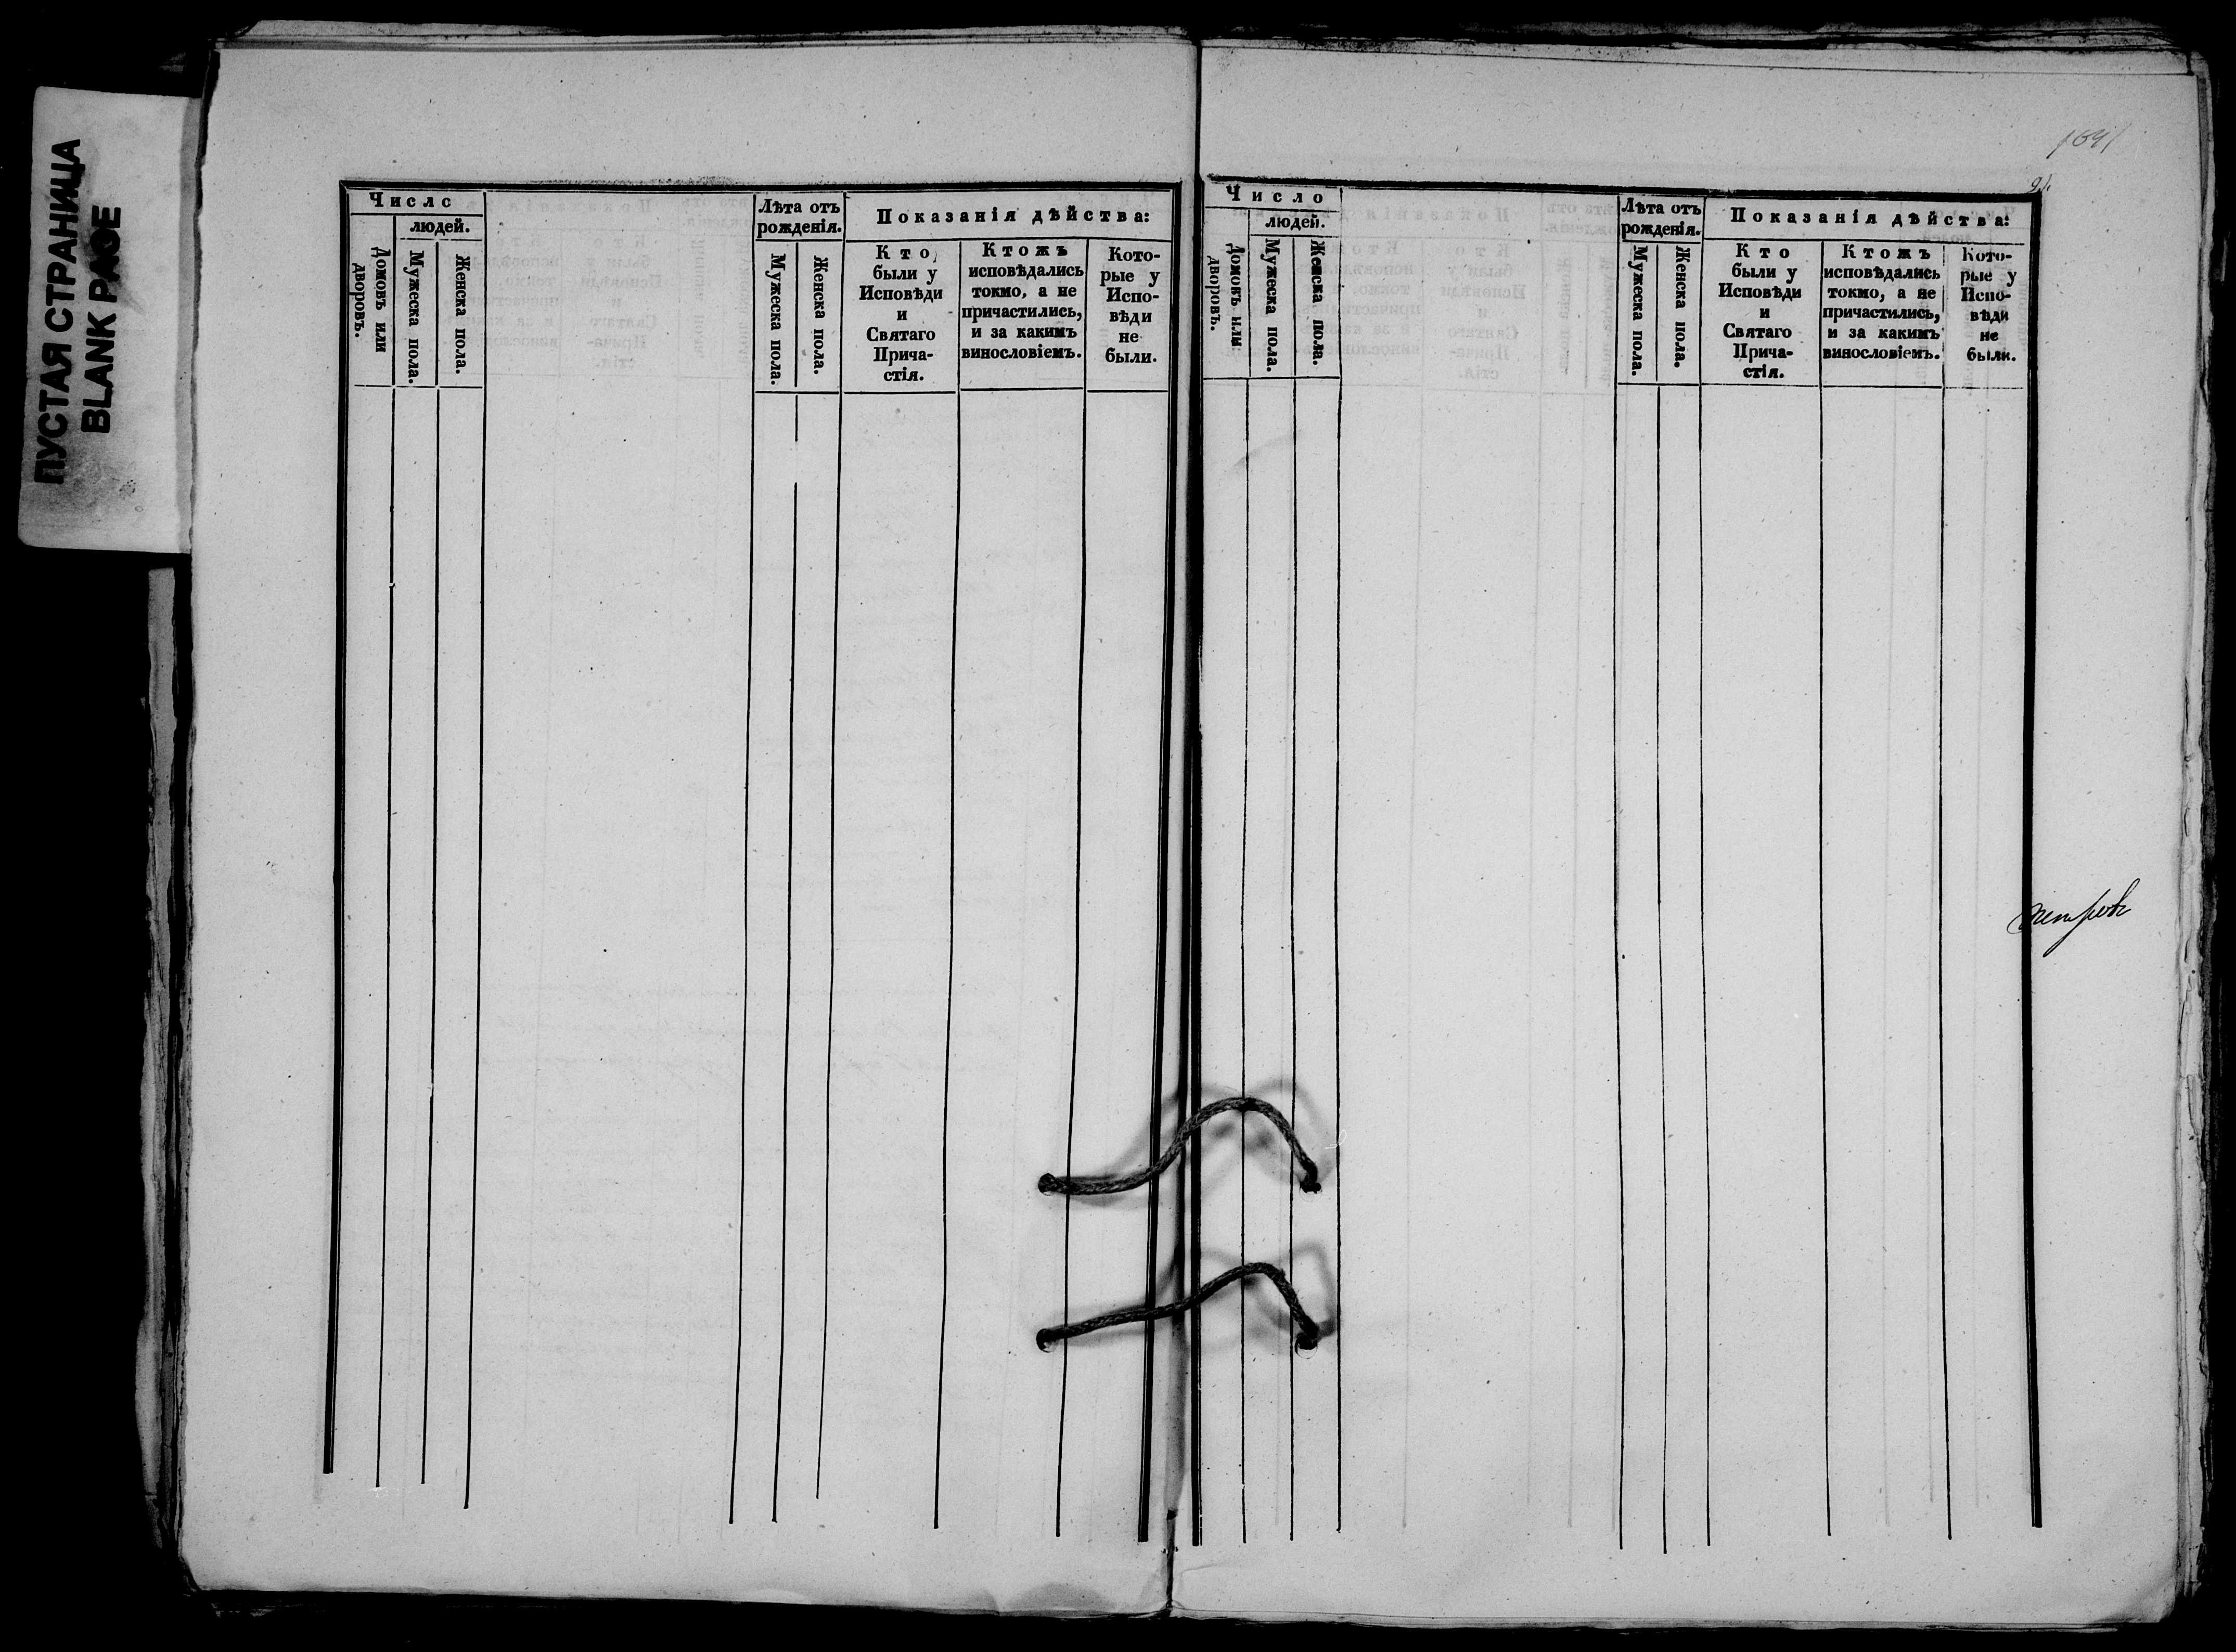 ПУСТАЯ СТРАНИЦА
BLANK PAGE
Число
людей.
Домовъ или
дворовъ.
Мужеска пола.
Женска пола.
Лѣта отъ
рожденія.
Мужеска пола.
Женска пола.
Показанія дѣйства:
Кто
были у
Исповѣди
и
Святаго
Прича-
стія.
Ктожъ
исповѣдались
токмо, а не
причастились,
и за какимъ
винословіемъ.
Кото-
рые у
Испо-
вѣди
не
были.
Число
людей.
Домовъ или
дворовъ.
Мужеска пола.
Женска пола.
Лѣта отъ
рожденія.
Мужеска пола.
Женска пола.
Показанія дѣйства:
Кто
были у
Исповѣди
и
Святаго
Прича-
стія.
Ктожъ
исповѣдались
токмо, а не
причастились,
и за какимъ
винословіемъ.
Кото-
рые у
Испо-
вѣди
не
были.